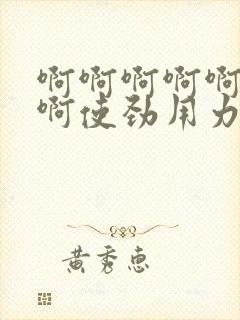 啊啊啊啊啊
啊使劲用力
黄秀惠